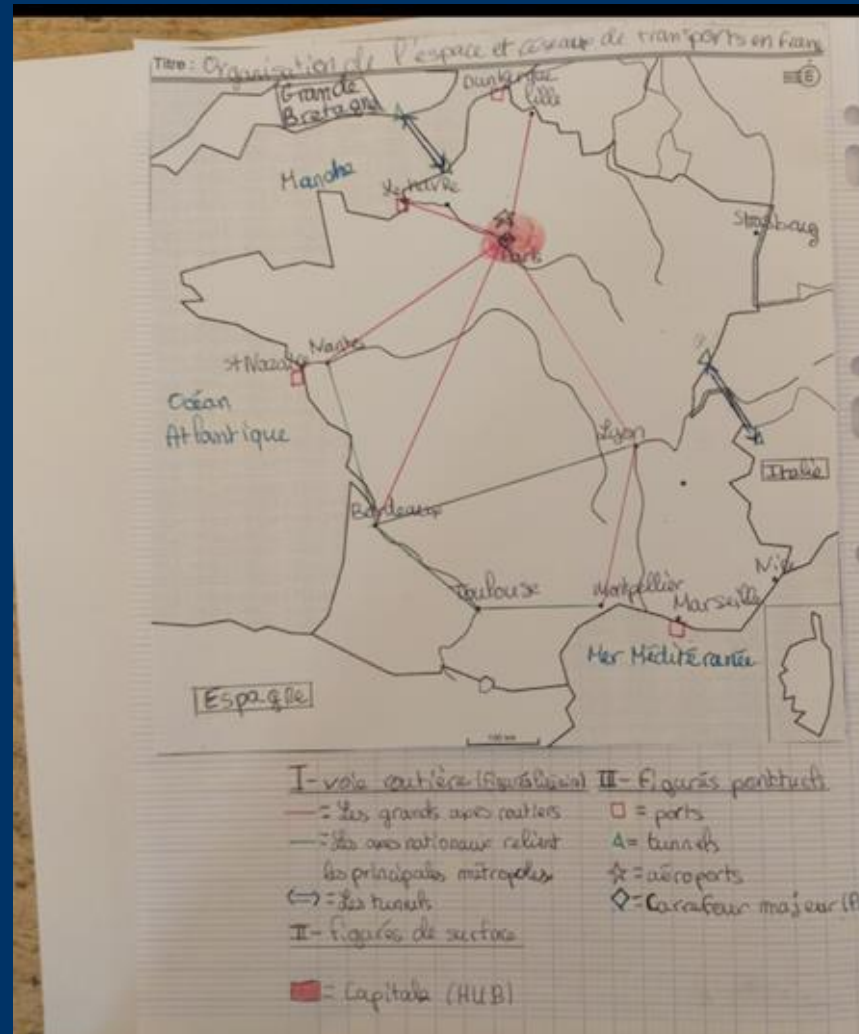 Titre: Organisation de l'espace et réseaux de transports en Franc
6
Grande
Bretagne
Dunkerque
Lille
Manche
Le Havre
Paris
Strasbourg
St Nazaire
Nantes
Océan
Atlantique
Lyon
Italie
Bordeaux
Toulouse
Montpellier
Marseille
Nice
Mer Méditéranée
Espagne
100 km
I- voie routière
= Les grands axes routiers
= Les axes nationaux relient
les principales métropoles
= Les tunnels
II- figurés de surface
= Capitale (HUB)
III- figurés ponctuels
= ports
= tunnels
= aéroports
= Carrefour majeur (P